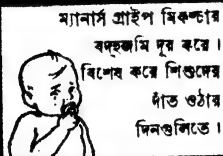 ম্যানার্স গ্রাইপ মিকশ্চার
বদহজমি দূর করে।
বিশেষ করে শিশুদের
দাঁত ওঠার
দিনগুলিতে।